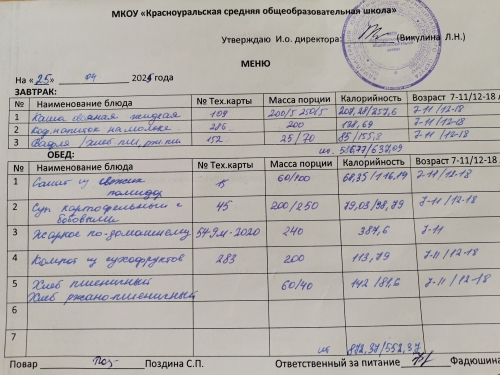 МКОУ «Красноуральская средняя общеобразовательная школа»
Утверждаю И.о. директора: (Викулина Л.Н.)
МЕНЮ
На «25» 04 2025 года
ЗАВТРАК:
№ Наименование блюда № Тех.карты Масса порции Калорийность Возраст 7-11/12-18 л
1 Каша овсяная жидкая 109 200/5 250/5 208,28/257,6 7-11/12-18
2 Коф.напиток на молоке 286 200 138,69 7-11/12-18
3 Вафля /хлеб пш, рж пш 152 25/70 85/155,8 7-11/12-18
ОБЕД:
№ Наименование блюда № Тех.карты Масса порции Калорийность Возраст 7-11/12-18 л
1 Салат из свежих помидор 15 60/100 68,35/116,19 7-11/12-18
2 Суп картофельный с бобовыми 45 200/250 79,03/98,79 7-11/12-18
3 Жаркое по-домашнему 54-9м-2020 240 387,6 7-11
4 Компот из сухофруктов 283 200 113,79 7-11/12-18
5 Хлеб пшеничный 60/40 142/81,6 7-11/12-18
Хлеб ржано-пшеничный
6
7
ит 872,37/552,37
Повар Поздина С.П. Ответственный за питание Фадюшина